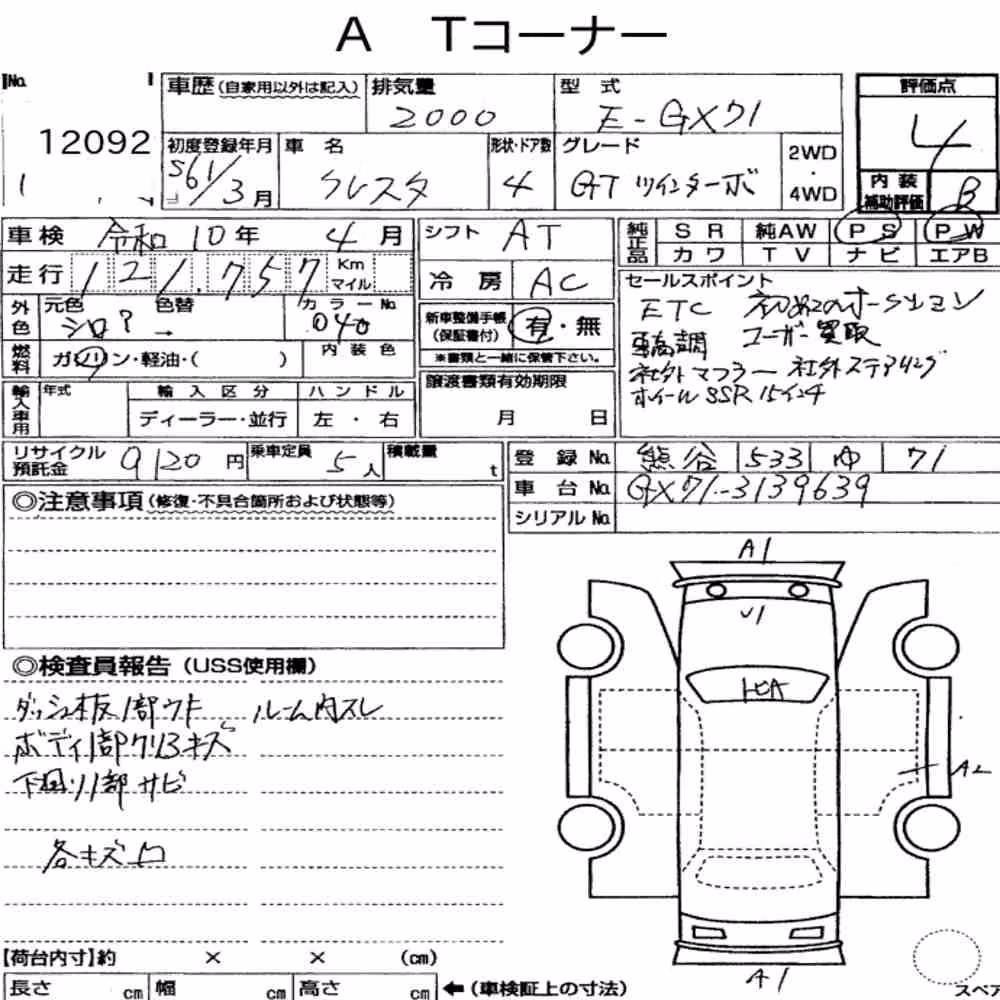 A Tコーナー
No.
12092
1
車歴 (自家用以外は記入) 排気量 2000 型式 E-GX71
初度登録年月 S61/3月 車名 クレスタ 形状・ドア数 4 グレード GT ツインターボ 2WD・4WD
評価点 4
内装補助評価 B
車検 令和10年 4月 シフト AT
走行 121,757 Km マイル 冷房 AC
外色 元色 シロ? 色替 → カラーNo. 040
燃料 ガソリン・軽油・( ) 内装色
新車整備手帳 (保証書付) 有・無
※書類と一緒に保管下さい。
輸入車用 年式 輸入区分 ハンドル
ディーラー・並行 左・右
譲渡書類有効期限
月 日
純正品 SR 純AW PS PW
カワ TV ナビ エアB
セールスポイント
ETC 初めてのオークション
車高調 ユーザー買取
社外マフラー 社外ステアリング
ホイールSSR 15インチ
リサイクル預託金 9120円 乗車定員 5人 積載量 t
登録No. 熊谷 533 ゆ 71
車台No. GX71-3139639
シリアルNo.
◎注意事項 (修復・不具合箇所および状態等)
◎検査員報告 (USS使用欄)
ダッシュ板1部ウキ、ルーム内スレ
ボディ1部クリヌキズ
下回り1部サビ
各キズ凹
A1
U1
トビA
A2
A1
【荷台内寸】約 × × (cm)
長さ cm 幅 cm 高さ cm ←(車検証上の寸法)
スペア